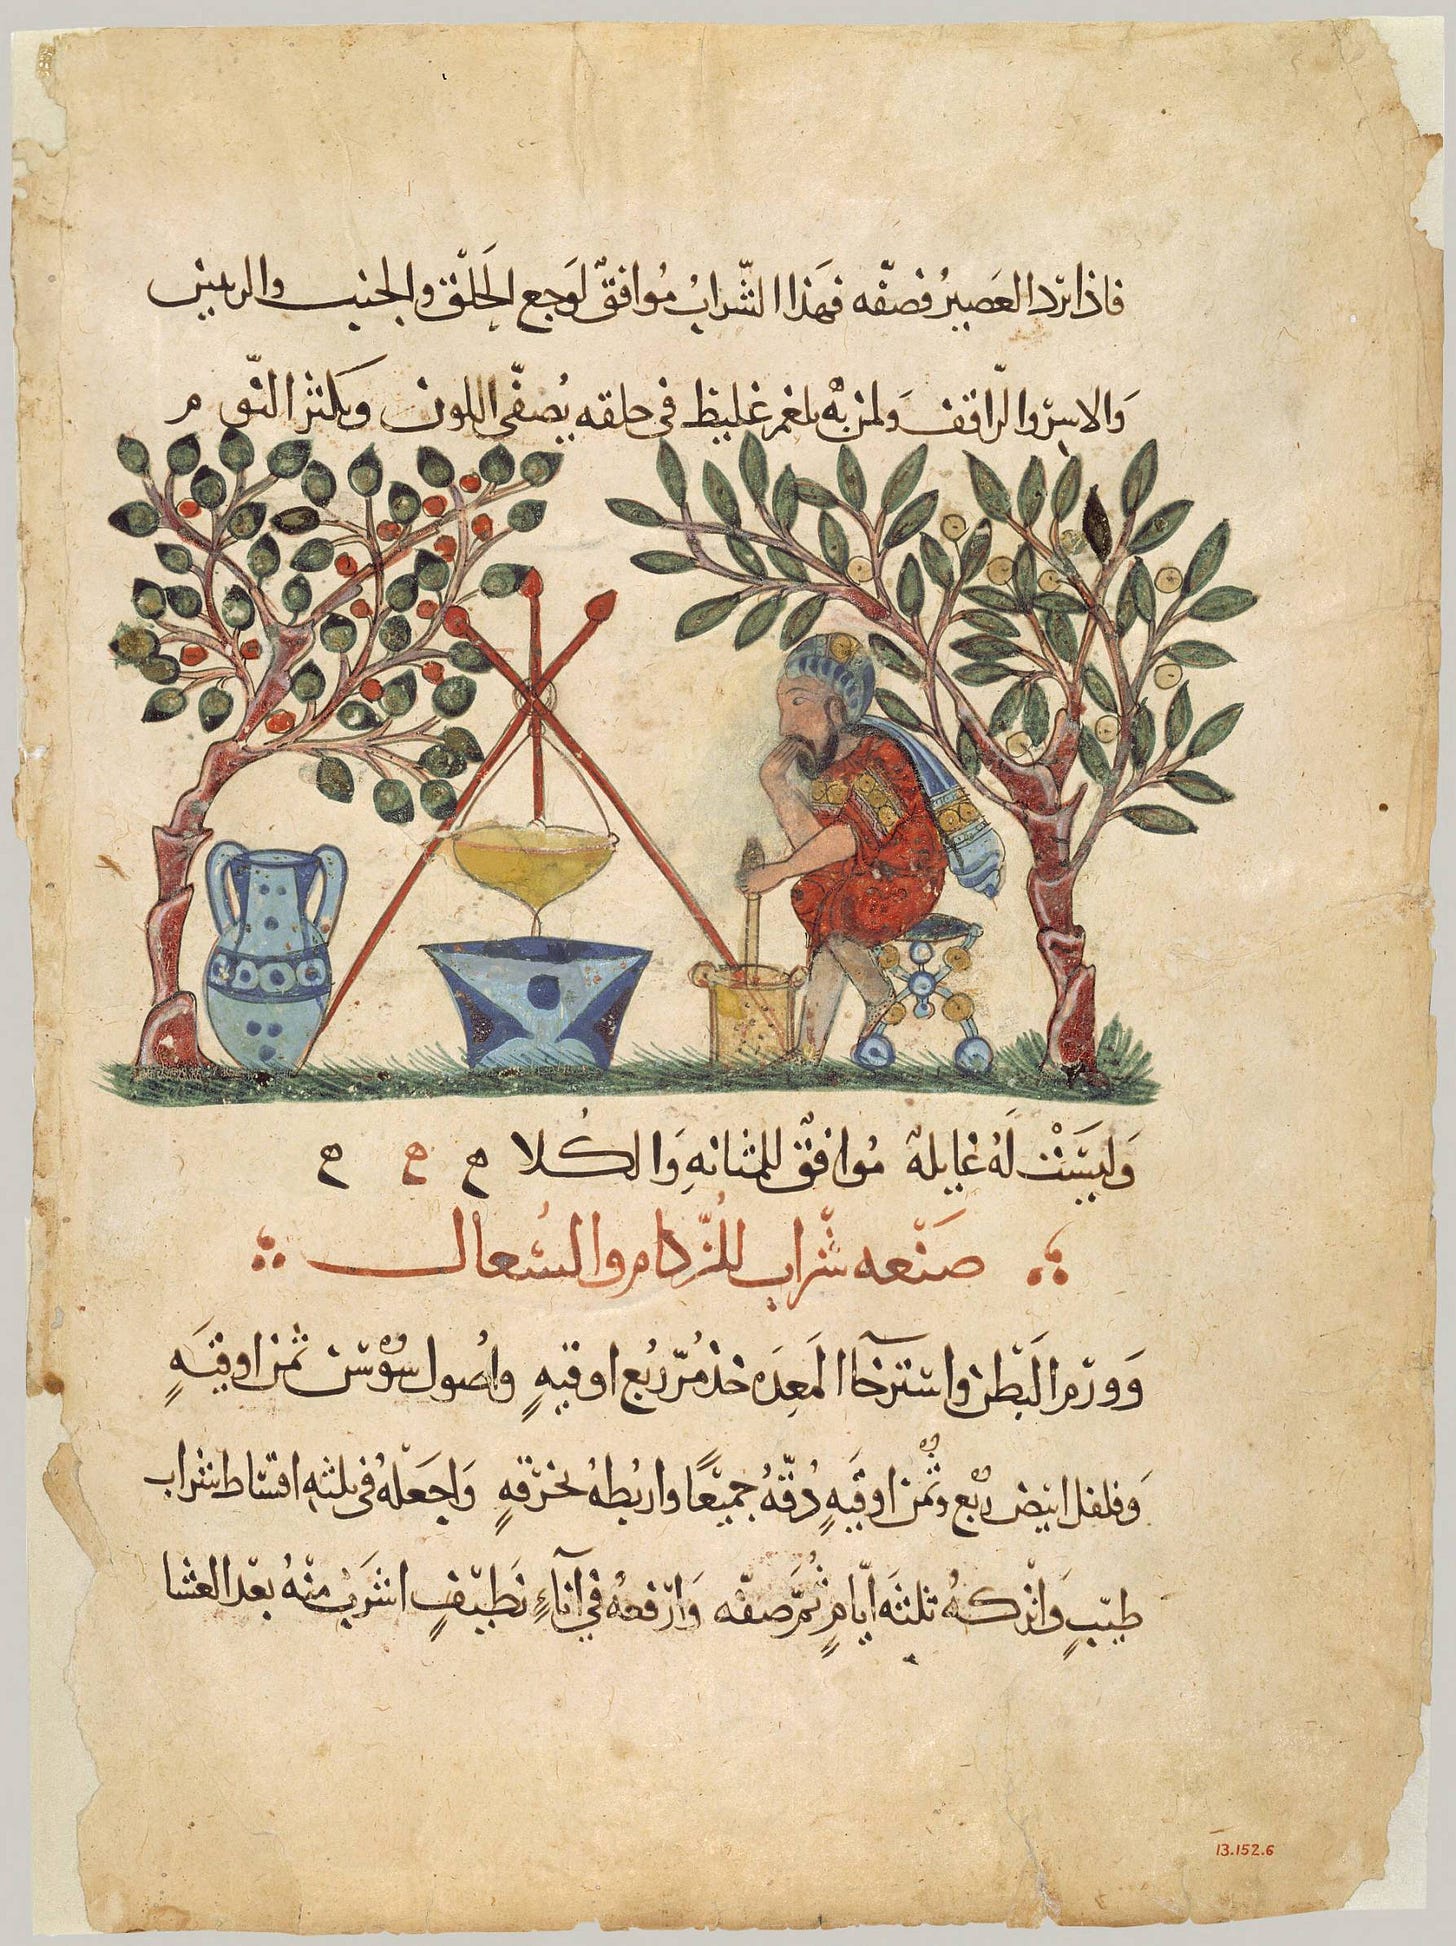 فاذا برد العَصيرُ فصفّه فهَذا الشَّرابُ مُوافقٌ لَوجع الحَلْق والجنب والريتين
وَالاسر والرّافف وَلمن بهُ بلغم غليظ في حلقه يُصفّى اللون ويكثر النّوم
وَليسَتْ لهُ غايلة مُوافق للمثانهِ وَالكُلا ح ح ح
صَنْعه شَراب للزُّكام والسُعال
وَوَرْم البَطْن واسْترخآا المَعِدَه خذ مُرّ ربُع اوقيهٍ واصُول سُوْسْن ثمن اوقيَهٍ
وَفلفل ابيض ربُع وثُمن اوقيَهٍ دُقّهُ جميْعًا واربُطهُ بخرْقهٍ وَاجعَلْهُ في ثلثهِ اقسَاط شراب
طيبٍ وَاتْركهُ ثلثَه ايّامٍ ثُمَّ صفّه وَارْفعهُ في آناءٍ نَظيْفٍ اشرَبْ منْهُ بعْد العشا
13.152.6